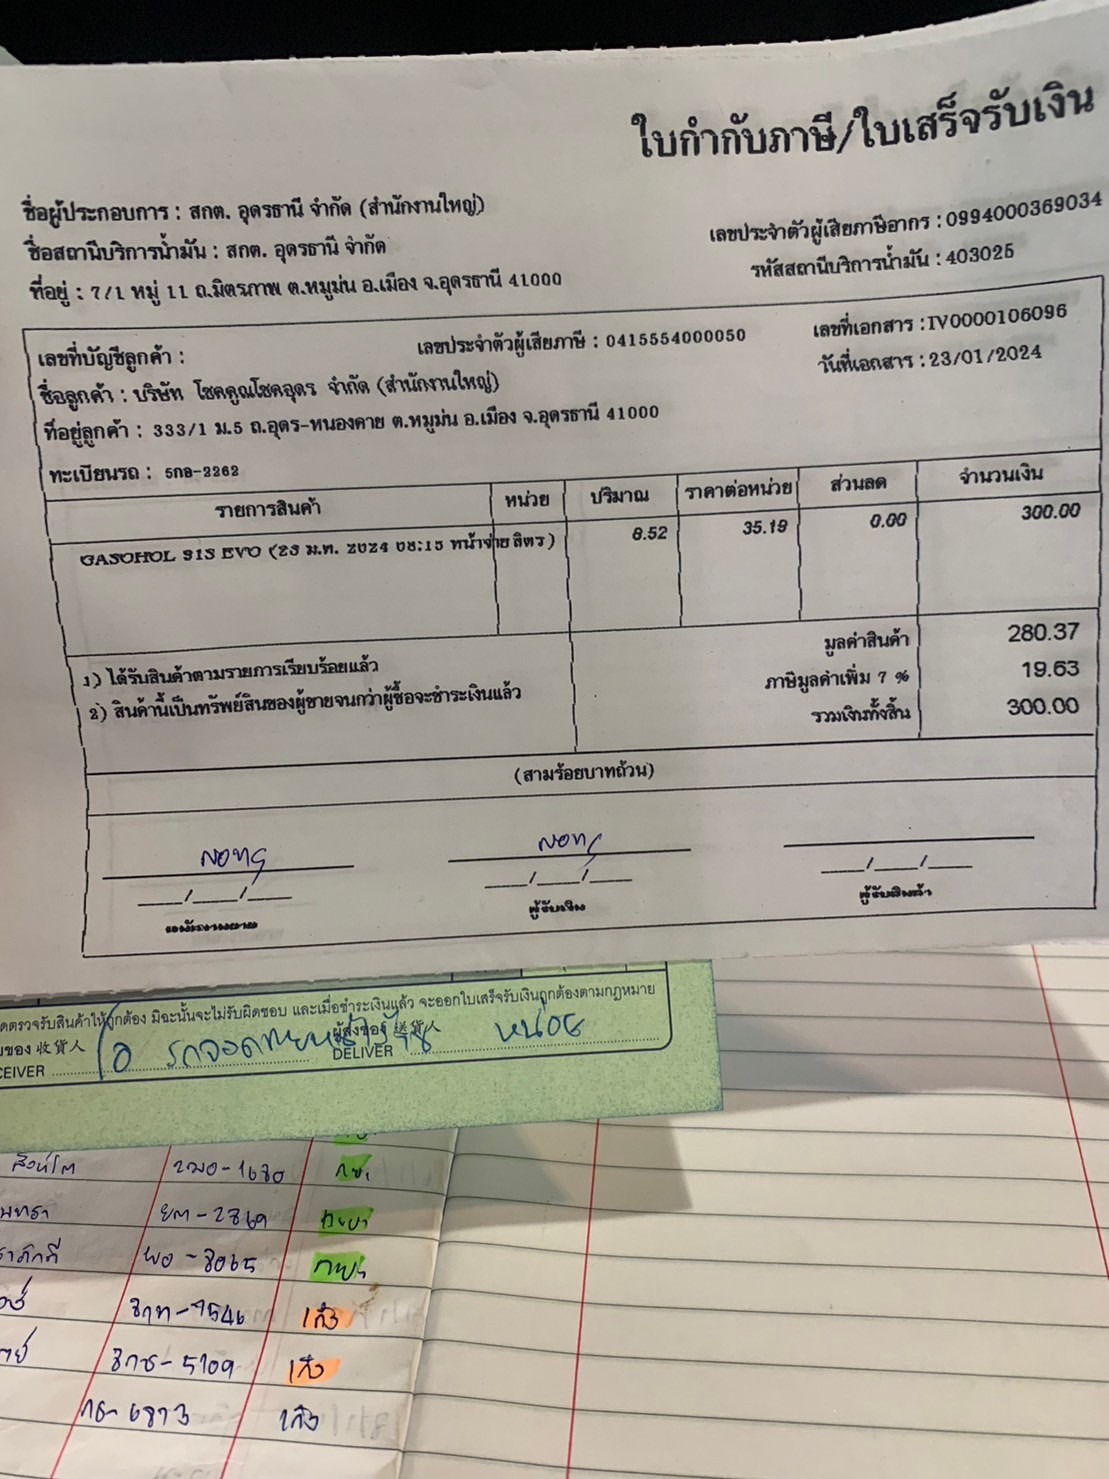 ใบกำกับภาษี/ใบเสร็จรับเงิน
ชื่อผู้ประกอบการ : สกต. อุดรธานี จำกัด (สำนักงานใหญ่)
เลขประจำตัวผู้เสียภาษีอากร : 0994000369034
ชื่อสถานีบริการน้ำมัน : สกต. อุดรธานี จำกัด
รหัสสถานีบริการน้ำมัน : 403025
ที่อยู่ : 7/1 หมู่ 11 ถ.มิตรภาพ ต.หมูม่น อ.เมือง จ.อุดรธานี 41000
เลขที่บัญชีลูกค้า : เลขประจำตัวผู้เสียภาษี : 0415554000050 เลขที่เอกสาร : IV0000106096
ชื่อลูกค้า : บริษัท โชคคูณโชคอุดร จำกัด (สำนักงานใหญ่) วันที่เอกสาร : 23/01/2024
ที่อยู่ลูกค้า : 333/1 ม.5 ถ.อุดร-หนองคาย ต.หมูม่น อ.เมือง จ.อุดรธานี 41000
ทะเบียนรถ : 5กอ-2262
รายการสินค้า หน่วย ปริมาณ ราคาต่อหน่วย ส่วนลด จำนวนเงิน
GASOHOL 91S EVO (23 ม.ค. 2024 08:15 หน้าจ่าย ลิตร) 8.52 35.19 0.00 300.00
1) ได้รับสินค้าตามรายการเรียบร้อยแล้ว
2) สินค้านี้เป็นทรัพย์สินของผู้ขายจนกว่าผู้ซื้อจะชำระเงินแล้ว
มูลค่าสินค้า 280.37
ภาษีมูลค่าเพิ่ม 7 % 19.63
รวมเงินทั้งสิ้น 300.00
(สามร้อยบาทถ้วน)
___/___/___ ___/___/___ ___/___/___
พนักงานขาย ผู้รับเงิน ผู้รับสินค้า
ตรวจรับสินค้าให้ถูกต้อง มิฉะนั้นจะไม่รับผิดชอบ และเมื่อชำระเงินแล้ว จะออกใบเสร็จรับเงินถูกต้องตามกฎหมาย
ของ 收貨人 ผู้ส่งของ 送貨人
CEIVER DELIVER หน่อย
สิงห์โต 2ฒอ-1680 กข.
ยต-2869
พอ-8065
3กท-7546 เก๋ง
3กซ-5109 เก๋ง
กธ-6873 เก๋ง